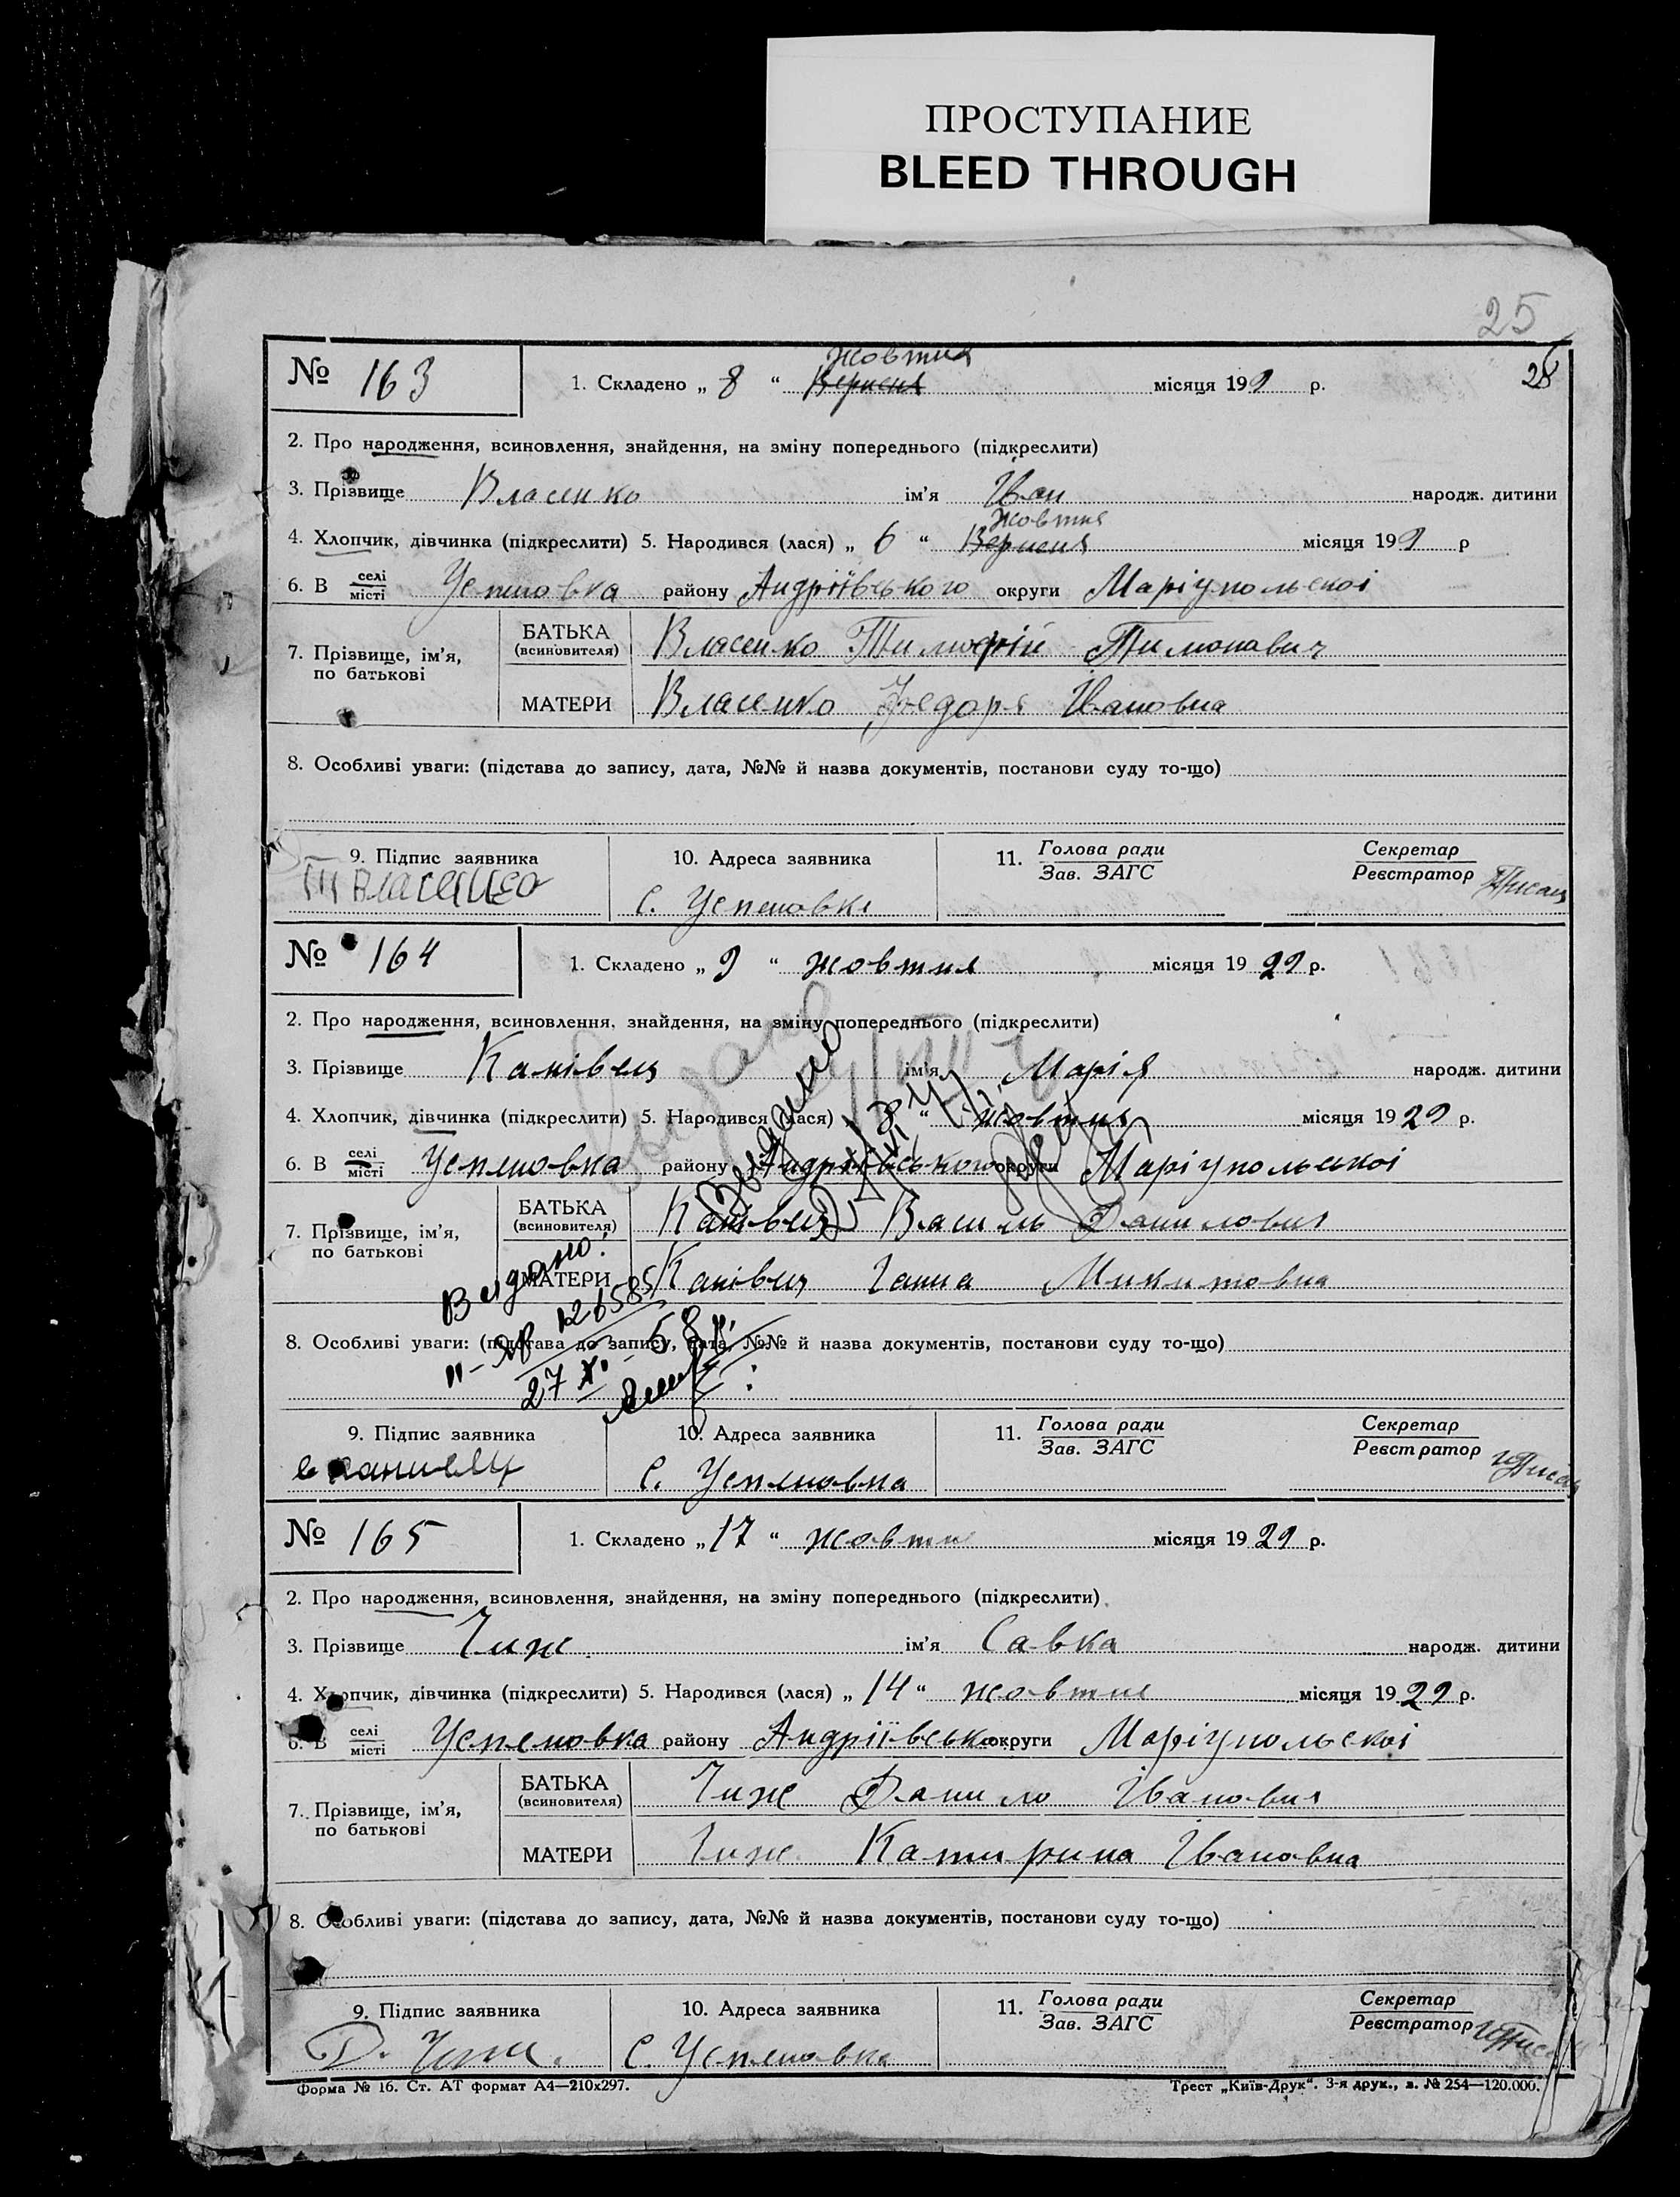 ПРОСТУПАНИЕ
BLEED THROUGH
25
№ 163
жовтня
1. Складено „ 8 “ Вересня місяця 199 р.
28
2. Про народження, всиновлення, знайдення, на зміну попереднього (підкреслити)
3. Прізвище Власенко ім’я Іван народж. дитини
жовтня
4. Хлопчик, дівчинка (підкреслити) 5. Народився (лася) „ 6 “ Вересня місяця 199 р
6. В селі місті Успеновка району Андріївського округи Маріупольскоі
7. Прізвище, ім’я, по батькові
БАТЬКА (всиновителя) Власенко Тимофій
МАТЕРИ Власенко Федора Івановна
8. Особливі уваги: (підстава до запису, дата, №№ й назва документів, постанови суду то-що)
9. Підпис заявника 10. Адреса заявника 11. Голова ради Зав. ЗАГС Секретар Реєстратор
Власенко С. Успеновка
№ 164
1. Складено „ 9 “ жовтня місяця 19 29 р.
2. Про народження, всиновлення, знайдення, на зміну попереднього (підкреслити)
3. Прізвище Канівець ім’я Марія народж. дитини
4. Хлопчик, дівчинка (підкреслити) 5. Народився (лася) „ 8 “ жовтня місяця 19 29 р.
6. В селі місті Успеновка району Андріївського округи Маріупольскоі
7. Прізвище, ім’я, по батькові
БАТЬКА (всиновителя) Канівець Василь Данилович
МАТЕРИ Канівець Ганна Микитовна
Выдано:
27 XI - 58
8. Особливі уваги: (підстава до запису, дата, №№ й назва документів, постанови суду то-що)
9. Підпис заявника 10. Адреса заявника 11. Голова ради Зав. ЗАГС Секретар Реєстратор
в Канивец С. Успеновка
№ 165
1. Складено „ 17 “ жовтня місяця 19 29 р.
2. Про народження, всиновлення, знайдення, на зміну попереднього (підкреслити)
3. Прізвище Чиж ім’я Савка народж. дитини
4. Хлопчик, дівчинка (підкреслити) 5. Народився (лася) „ 14 “ жовтня місяця 19 29 р.
6. В селі місті Успеновка району Андріївсько округи Маріупольскоі
7. Прізвище, ім’я, по батькові
БАТЬКА (всиновителя) Чиж Данило Іванович
МАТЕРИ Чиж Катирина Івановна
8. Особливі уваги: (підстава до запису, дата, №№ й назва документів, постанови суду то-що)
9. Підпис заявника 10. Адреса заявника 11. Голова ради Зав. ЗАГС Секретар Реєстратор
Д. Чиж. С. Успеновка
Форма № 16. Ст. АТ формат А4—210х297.
Трест „Київ-Друк“. 3-я друк., з. № 254—120.000.